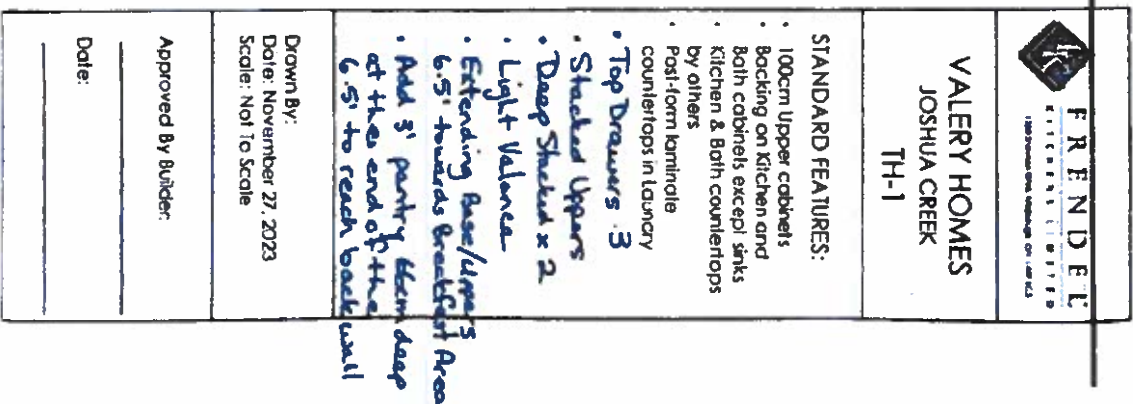 FRENDEL
KITCHENS LIMITED
VALERY HOMES
JOSHUA CREEK
TH-1
STANDARD FEATURES:
• 100cm Upper cabinets
• Backing on Kitchen and
Bath cabinets except sinks
• Kitchen & Bath countertops
by others
• Post-form laminate
countertops in Laundry
• Top Drawers : 3
• Stacked Uppers
• Deep Stacked x 2
• Light Valance
• Extending Base/Uppers
6.5' towards Breakfast Area
• Add 3' pantry 66cm deep
at the end of the
6.5' to reach back wall
Drawn By:
Date: November 27, 2023
Scale: Not To Scale
Approved By Builder:
Date: